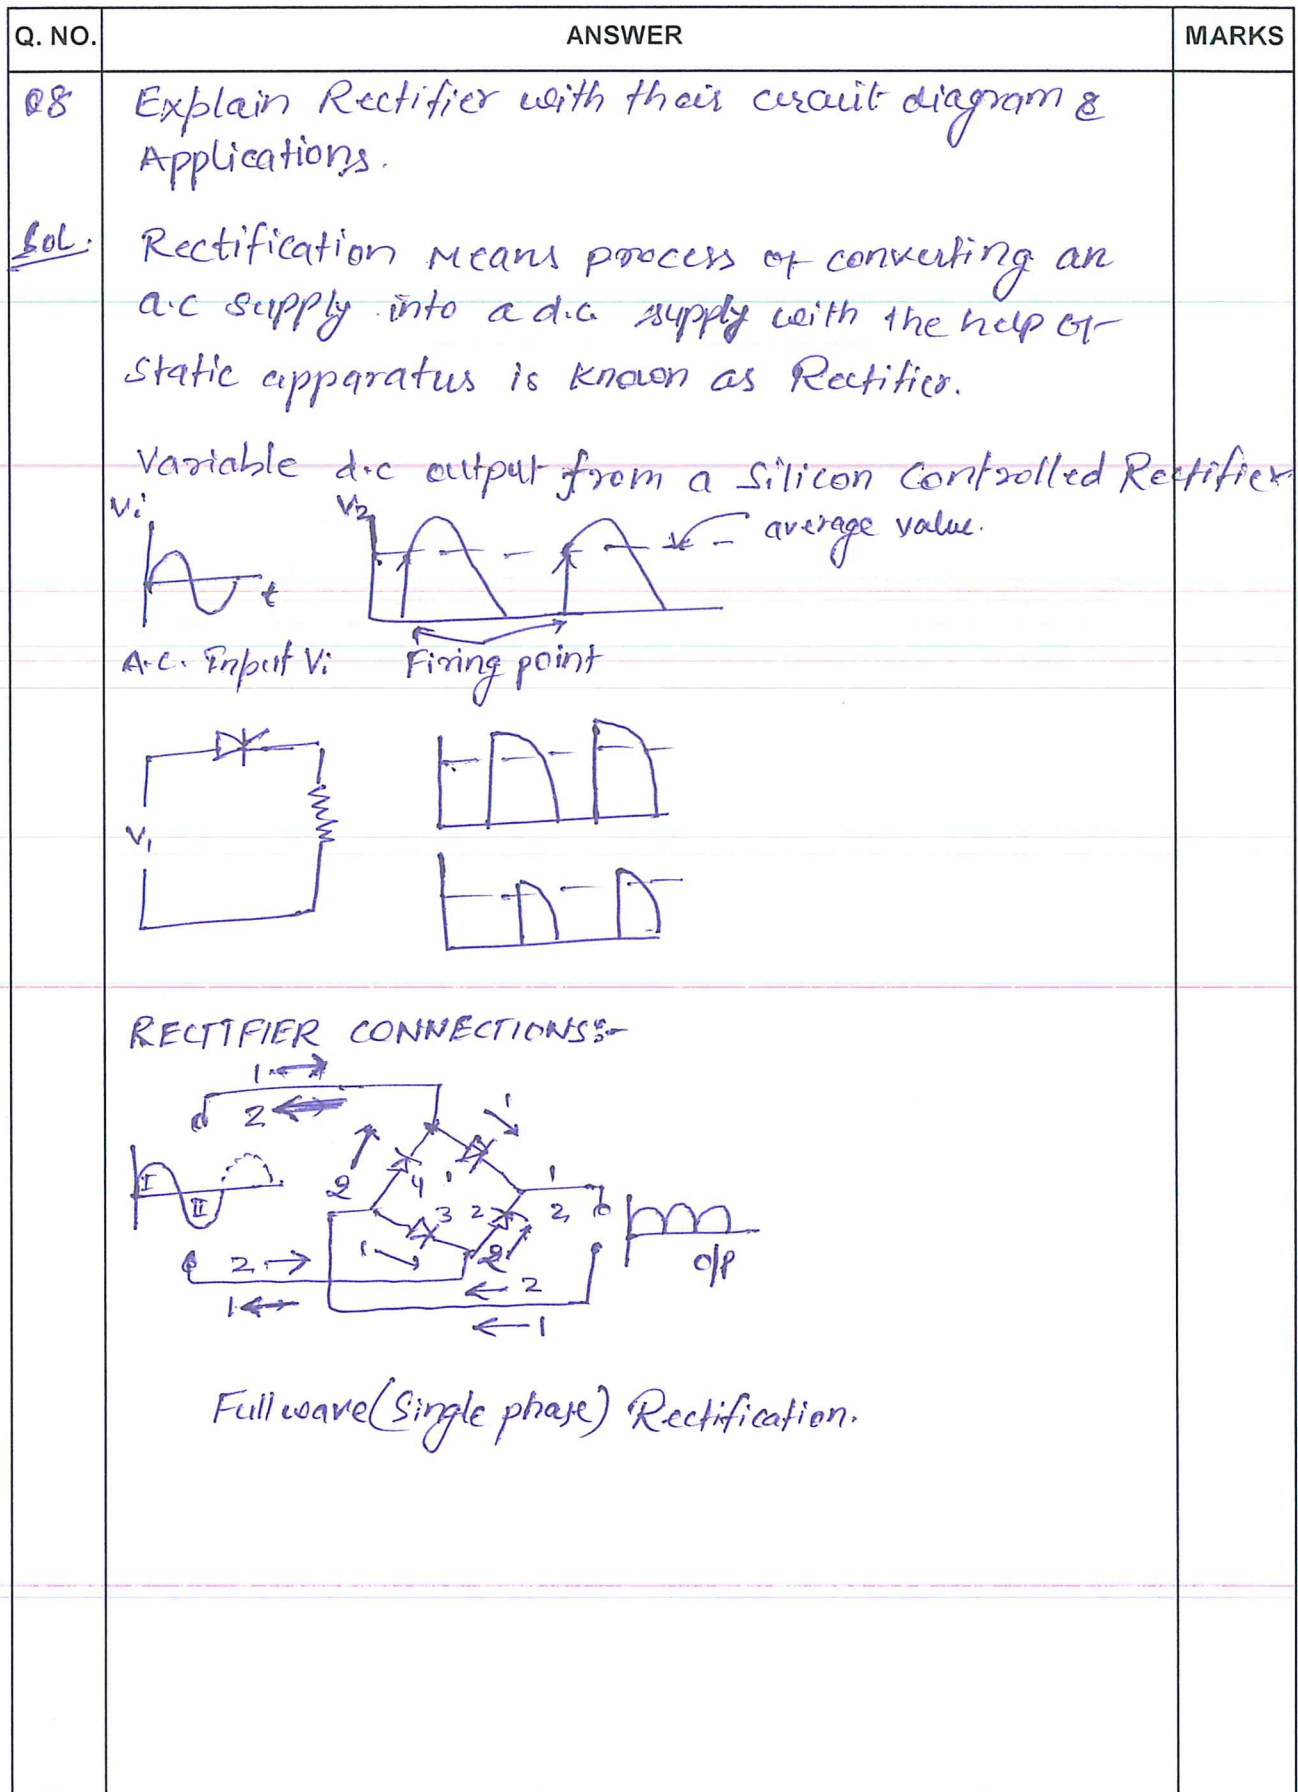 Q. NO. ANSWER MARKS
Q8 Explain Rectifier with their circuit diagram &
Applications.
Sol. Rectification Means process of converting an
a.c supply into a d.c supply with the help of
static apparatus is known as Rectifier.
Variable d.c output from a Silicon Controlled Rectifier
Vi V2 average value.
t
A.C. Input Vi Firing point
V1
RECTIFIER CONNECTIONS:-
1 →
2 ←
1
2 4 1 1
I II 3 2 2
1 2 o/p
2 →
← 2
1 ←
← 1
Full wave (Single phase) Rectification.